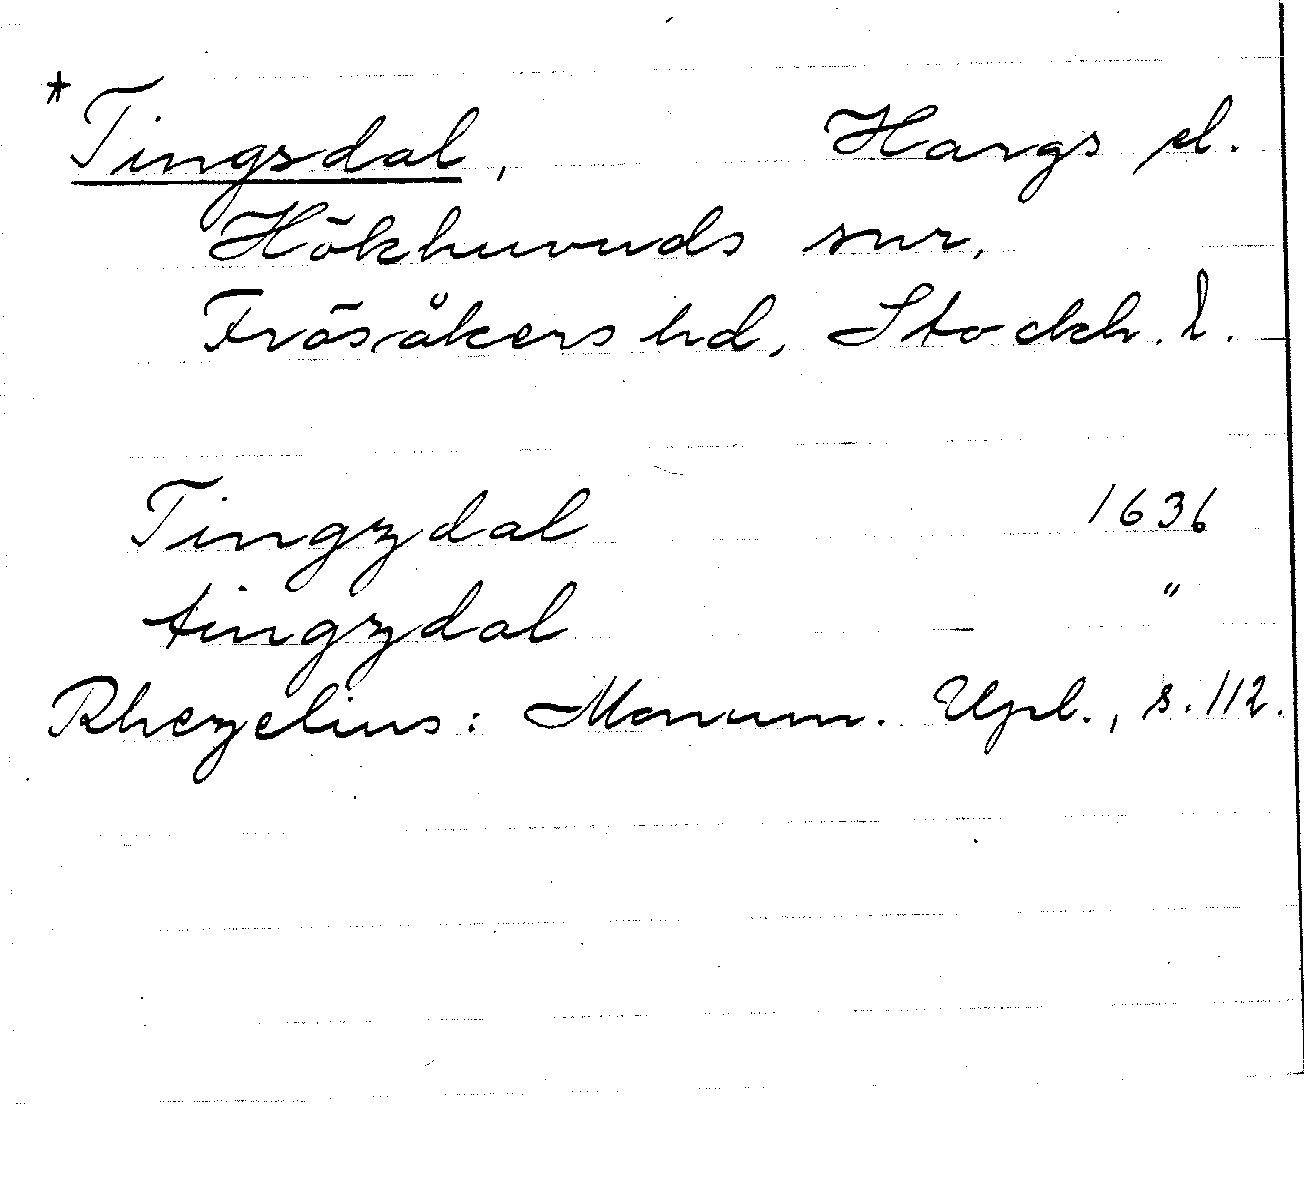 * Tingsdal, Hargs el.
Hökhuvuds snr,
Frösåkers hd, Stockh. l.
Tingzdal 1636
tingzdal "
Rhezelius: Monum. Upl., s. 112.